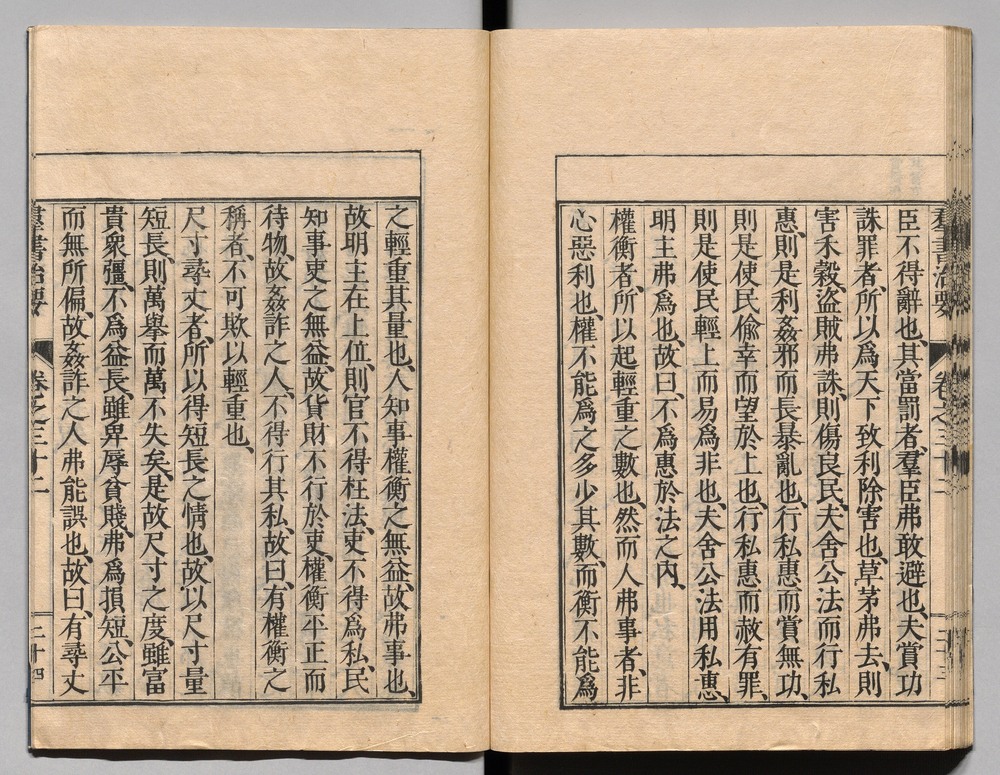 羣書治要 卷之三十二 二十三
臣不得辭也、其當罰者、羣臣弗敢避也、夫賞功
誅罪者、所以爲天下致利除害也、草茅弗去、則
害禾穀、盜賊弗誅、則傷良民、夫舍公法而行私
惠、則是利姦邪而長暴亂也、行私惠而賞無功、
則是使民偸幸而望於上也、行私惠而赦有罪、
則是使民輕上而易爲非也、夫舍公法用私惠、
明主弗爲也、故曰、不爲惠於法之內、
權衡者、所以起輕重之數也、然而人弗事者、非
心惡利也、權不能爲之多少其數、而衡不能爲
之輕重其量也、人知事權衡之無益、故弗事也、
故明主在上位、則官不得枉法、吏不得爲私、民
知事吏之無益、故貨財不行於吏、權衡平正而
待物、故姦詐之人、不得行其私、故曰、有權衡之
稱者、不可欺以輕重也、
尺寸尋丈者、所以得短長之情也、故以尺寸量
短長、則萬舉而萬不失矣、是故尺寸之度、雖富
貴衆彊、不爲益長、雖卑辱貧賤、弗爲損短、公平
而無所偏、故姦詐之人弗能誤也、故曰、有尋丈
羣書治要 卷之三十二 二十四